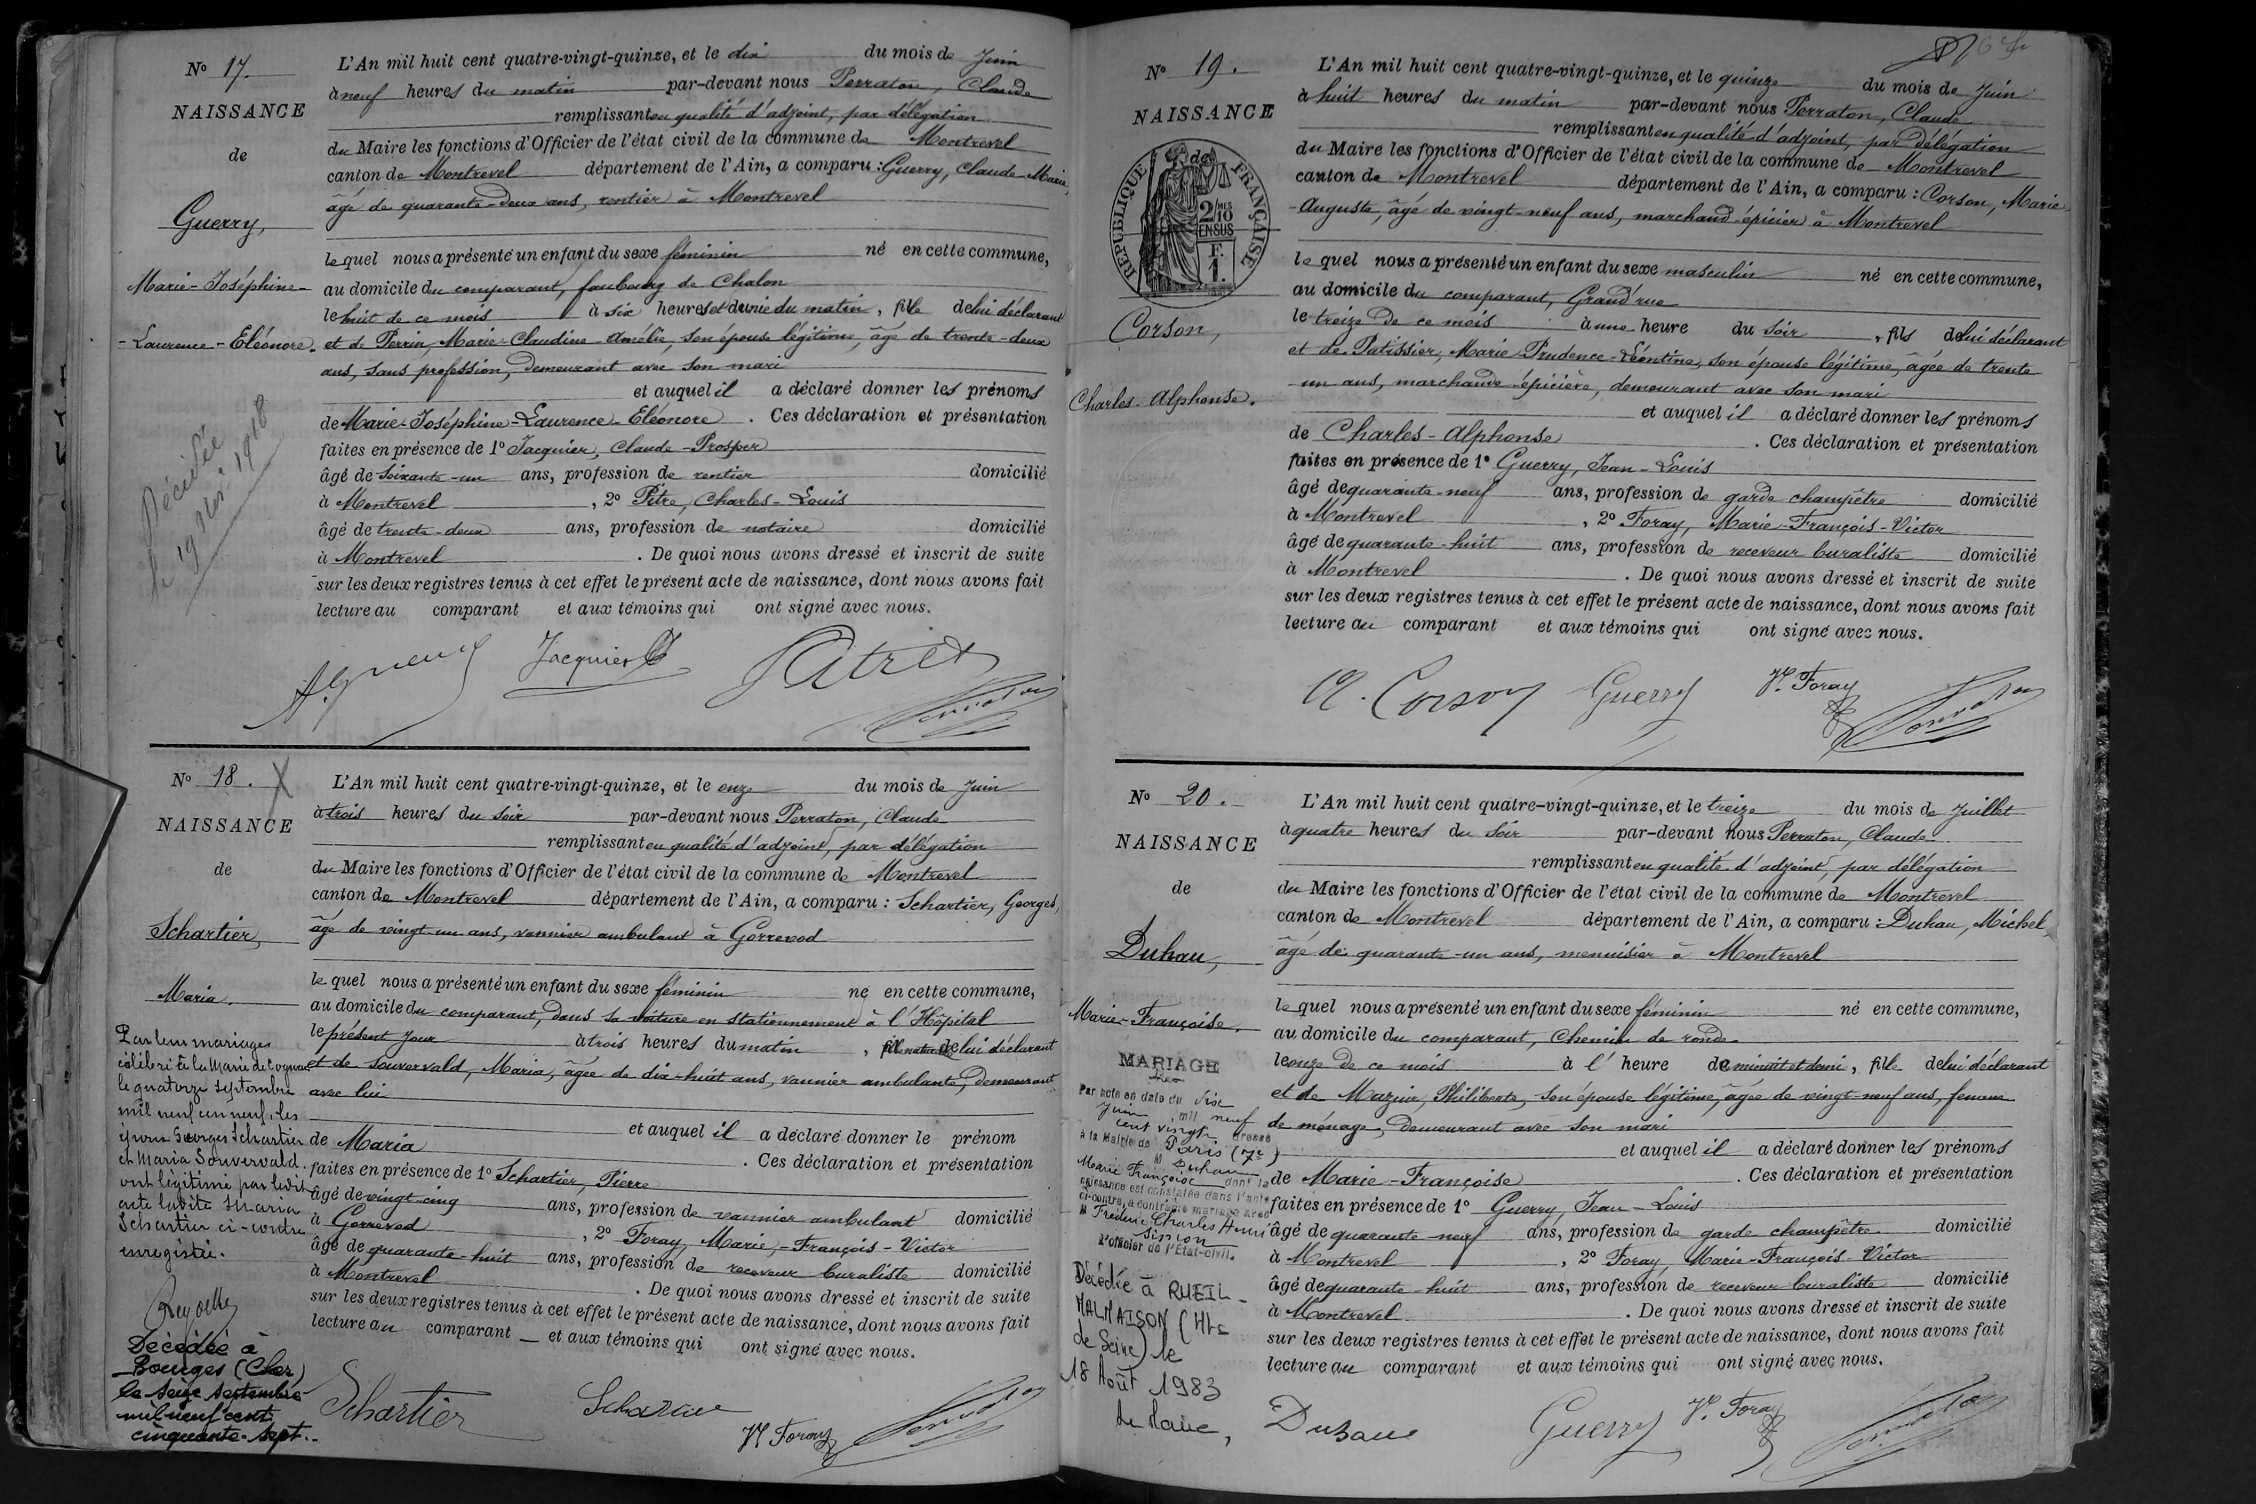 No 17.
NAISSANCE
de
Guerry,
Marie-Joséphine-
-Laurence-Eléonore.
Décédée
le 19 Nov. 1918
L'An mil huit cent quatre-vingt-quinze, et le dix du mois de Juin
à neuf heures du matin par-devant nous Perraton, Claude
remplissant en qualité d'adjoint, par délégation
du Maire les fonctions d'Officier de l'état civil de la commune de Montrevel
canton de Montrevel département de l'Ain, a comparu : Guerry, Claude-Marie,
âgé de quarante-deux ans, rentier à Montrevel
le quel nous a présenté un enfant du sexe féminin né en cette commune,
au domicile du comparant, faubourg de Chalon
le huit de ce mois à six heures et demie du matin, fille de lui déclarant
et de Perrin, Marie-Claudine-Amélie, son épouse légitime, âgé de trente-deux
ans, sans profession, demeurant avec son mari
et auquel il a déclaré donner les prénoms
de Marie-Joséphine-Laurence-Eléonore. Ces déclaration et présentation
faites en présence de 1o Jacquier, Claude-Prosper
âgé de soixante-un ans, profession de rentier domicilié
à Montrevel, 2o Pitre, Charles-Louis
âgé de trente-deux ans, profession de notaire domicilié
à Montrevel. De quoi nous avons dressé et inscrit de suite
sur les deux registres tenus à cet effet le présent acte de naissance, dont nous avons fait
lecture au comparant et aux témoins qui ont signé avec nous.
Jacquier
No 18.
NAISSANCE
de
Schartier,
Maria.
Par leur mariage
célébré à la Mairie de Cognac
le quatorze septembre
mil neuf cent neuf, les
époux Georges Schartier
et Maria Souvervald
ont légitimé par ledit
acte ladite Maria
Schartier ci-contre
enregistrée.
Décédée à
Bourges (Cher)
le seize septembre
mil neuf cent
cinquante-sept.
L'An mil huit cent quatre-vingt-quinze, et le onze du mois de Juin
à trois heures du soir par-devant nous Perraton, Claude
remplissant en qualité d'adjoint, par délégation
du Maire les fonctions d'Officier de l'état civil de la commune de Montrevel
canton de Montrevel département de l'Ain, a comparu : Schartier, Georges,
âgé de vingt-un ans, vannier ambulant à Gorrevod
le quel nous a présenté un enfant du sexe féminin né en cette commune,
au domicile du comparant, dans sa voiture en stationnement à l'Hôpital
le présent jour à trois heures du matin, fille naturelle de lui déclarant
et de Souvervald, Maria, âgée de dix-huit ans, vannier ambulante, demeurant
avec lui
et auquel il a déclaré donner le prénom
de Maria. Ces déclaration et présentation
faites en présence de 1o Schartier, Pierre
âgé de vingt-cinq ans, profession de vannier ambulant domicilié
à Gorrevod, 2o Foray, Marie-François-Victor
âgé de quarante-huit ans, profession de receveur buraliste domicilié
à Montrevel. De quoi nous avons dressé et inscrit de suite
sur les deux registres tenus à cet effet le présent acte de naissance, dont nous avons fait
lecture au comparant et aux témoins qui ont signé avec nous.
Schartier
Vr Foray
No 19.
NAISSANCE
de
RÉPUBLIQUE FRANÇAISE
2/10 MES
EN SUS
F.
1.
Corson,
Charles-Alphonse.
L'An mil huit cent quatre-vingt-quinze, et le quinze du mois de Juin
à huit heures du matin par-devant nous Perraton, Claude
remplissant en qualité d'adjoint, par délégation
du Maire les fonctions d'Officier de l'état civil de la commune de Montrevel
canton de Montrevel département de l'Ain, a comparu : Corson, Marie-
-Auguste, âgé de vingt-neuf ans, marchand-épicier à Montrevel
le quel nous a présenté un enfant du sexe masculin né en cette commune,
au domicile du comparant, Grand'rue
le treize de ce mois à une heure du soir, fils de lui déclarant
et de Patissier, Marie-Prudence-Léontine, son épouse légitime, âgée de trente
un ans, marchande-épicière, demeurant avec son mari
et auquel il a déclaré donner les prénoms
de Charles-Alphonse. Ces déclaration et présentation
faites en présence de 1o Guerry, Jean-Louis
âgé de quarante-neuf ans, profession de garde champêtre domicilié
à Montrevel, 2o Foray, Marie-François-Victor
âgé de quarante-huit ans, profession de receveur buraliste domicilié
à Montrevel. De quoi nous avons dressé et inscrit de suite
sur les deux registres tenus à cet effet le présent acte de naissance, dont nous avons fait
lecture au comparant et aux témoins qui ont signé avec nous.
A. Corson Guerry Vr Foray
No 20.
NAISSANCE
de
Duhau,
Marie-Françoise.
MARIAGE
Par acte en date du dix
Juin mil neuf
cent vingt dressé
à la Mairie de Paris (7e)
M Duhau
Marie Françoise dont la
naissance est constatée dans l'acte
ci-contre, a contracté mariage avec
M Frédéric Charles Henri
Simon
L'officier de l'Etat-civil.
Décédée à RUEIL-
MALMAISON (Hts
de Seine) le
18 Août 1983
Le Maire,
L'An mil huit cent quatre-vingt-quinze, et le treize du mois de Juillet
à quatre heures du soir par-devant nous Perraton, Claude
remplissant en qualité d'adjoint, par délégation
du Maire les fonctions d'Officier de l'état civil de la commune de Montrevel
canton de Montrevel département de l'Ain, a comparu : Duhau, Michel,
âgé de quarante-un ans, menuisier à Montrevel
le quel nous a présenté un enfant du sexe féminin né en cette commune,
au domicile du comparant, Chemin de ronde
le onze de ce mois à l'heure de minuit et demi, fille de lui déclarant
et de Mazuir, Philiberte, son épouse légitime, âgée de vingt-neuf ans, femme
de ménage, demeurant avec son mari
et auquel il a déclaré donner les prénoms
de Marie-Françoise. Ces déclaration et présentation
faites en présence de 1o Guerry, Jean-Louis
âgé de quarante-neuf ans, profession de garde champêtre domicilié
à Montrevel, 2o Foray, Marie-François-Victor
âgé de quarante-huit ans, profession de receveur buraliste domicilié
à Montrevel. De quoi nous avons dressé et inscrit de suite
sur les deux registres tenus à cet effet le présent acte de naissance, dont nous avons fait
lecture au comparant et aux témoins qui ont signé avec nous.
Duhau Guerry Vr Foray